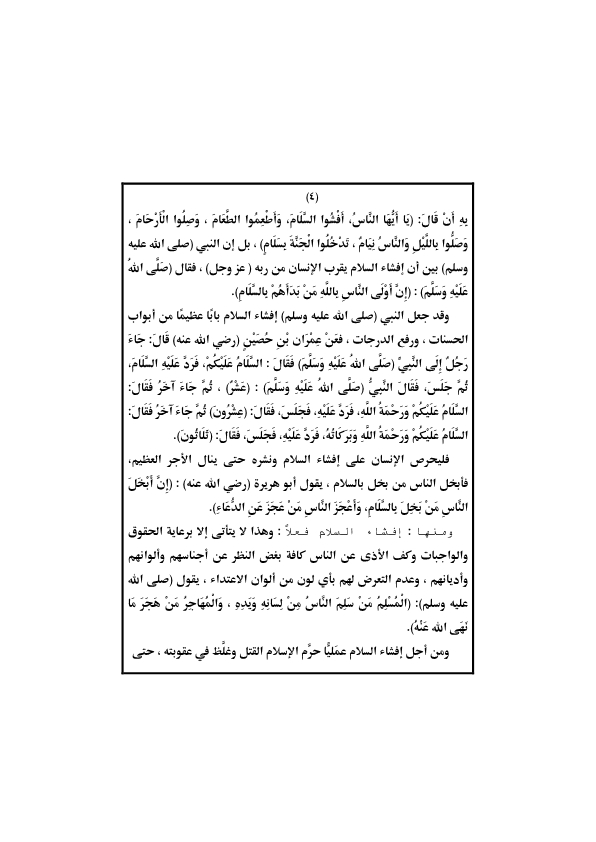 (٤)
بِهِ أَنْ قَالَ: (يَا أَيُّهَا النَّاسُ، أَفْشُوا السَّلَامَ، وَأَطْعِمُوا الطَّعَامَ ، وَصِلُوا الْأَرْحَامَ ،
وَصَلُّوا بِاللَّيْلِ وَالنَّاسُ نِيَامٌ ، تَدْخُلُوا الْجَنَّةَ بِسَلَامٍ) ، بل إن النبي (صلى الله عليه
وسلم) بين أن إفشاء السلام يقرب الإنسان من ربه ( عز وجل) ، فقال (صَلَّى اللهُ
عَلَيْهِ وَسَلَّمَ) : (إِنَّ أَوْلَى النَّاسِ بِاللَّهِ مَنْ بَدَأَهُمْ بِالسَّلَامِ).
وقد جعل النبي (صلى الله عليه وسلم) إفشاء السلام بابًا عظيمًا من أبواب
الحسنات ، ورفع الدرجات ، فعَنْ عِمْرَان بْنِ حُصَيْنٍ (رضي الله عنه) قَالَ: جَاءَ
رَجُلٌ إِلَى النَّبِيِّ (صَلَّى اللهُ عَلَيْهِ وَسَلَّمَ) فَقَالَ : السَّلَامُ عَلَيْكُمْ، فَرَدَّ عَلَيْهِ السَّلَامَ،
ثُمَّ جَلَسَ، فَقَالَ النَّبِيُّ (صَلَّى اللهُ عَلَيْهِ وَسَلَّمَ) : (عَشْرٌ) ، ثُمَّ جَاءَ آخَرُ فَقَالَ:
السَّلَامُ عَلَيْكُمْ وَرَحْمَةُ اللَّهِ، فَرَدَّ عَلَيْهِ، فَجَلَسَ، فَقَالَ: (عِشْرُونَ) ثُمَّ جَاءَ آخَرُ فَقَالَ:
السَّلَامُ عَلَيْكُمْ وَرَحْمَةُ اللَّهِ وَبَرَكَاتُهُ، فَرَدَّ عَلَيْهِ، فَجَلَسَ، فَقَالَ: (ثَلَاثُونَ).
فليحرص الإنسان على إفشاء السلام ونشره حتى ينال الأجر العظيم،
فأبخل الناس من بخل بالسلام ، يقول أبو هريرة (رضي الله عنه) : (إِنَّ أَبْخَلَ
النَّاسِ مَنْ بَخِلَ بِالسَّلَامِ، وَأَعْجَزَ النَّاسِ مَنْ عَجَزَ عَنِ الدُّعَاءِ).
ومنها : إفشاء السلام فعلاً : وهذا لا يتأتى إلا برعاية الحقوق
والواجبات وكف الأذى عن الناس كافة بغض النظر عن أجناسهم وألوانهم
وأديانهم ، وعدم التعرض لهم بأي لون من ألوان الاعتداء ، يقول (صلى الله
عليه وسلم): (الْمُسْلِمُ مَنْ سَلِمَ النَّاسُ مِنْ لِسَانِهِ وَيَدِهِ ، وَالْمُهَاجِرُ مَنْ هَجَرَ مَا
نَهَى الله عَنْهُ).
ومن أجل إفشاء السلام عمَليًّا حرَّم الإسلام القتل وغلَّظ في عقوبته ، حتى